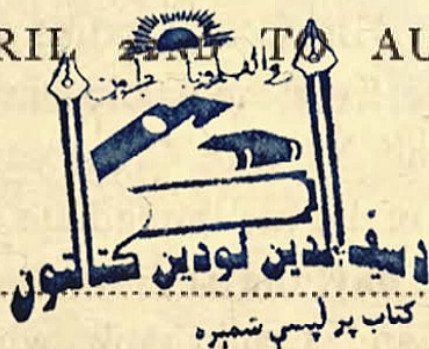 RIL 22ND TO AU
د سیف الدین لودین کتابتون
کتاب پر لپسې شمېره